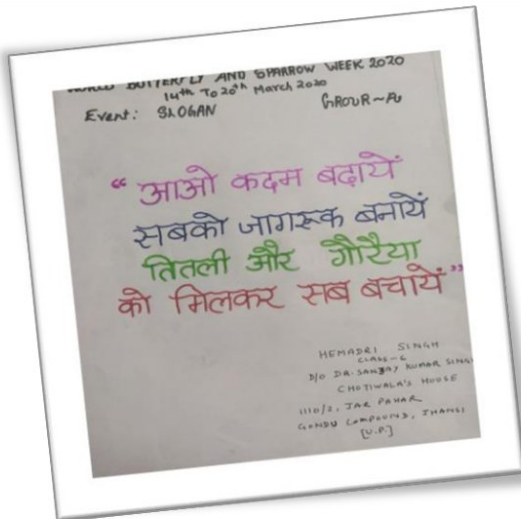 WORLD BUTTERFLY AND SPARROW WEEK 2020
14th To 20th March 2020
Event: SLOGAN
“ आओ कदम बढ़ायें
सबको जागरूक बनायें
तितली और गौरैया
को मिलकर सब बचायें”
HEMADRI SINGH
CLASS-6
D/O DR. SANJAY KUMAR SINGH
CHOTIWALA'S HOUSE
1110/2, JAR PAHAR
GONDU COMPOUND, JHANSI
[U.P.]